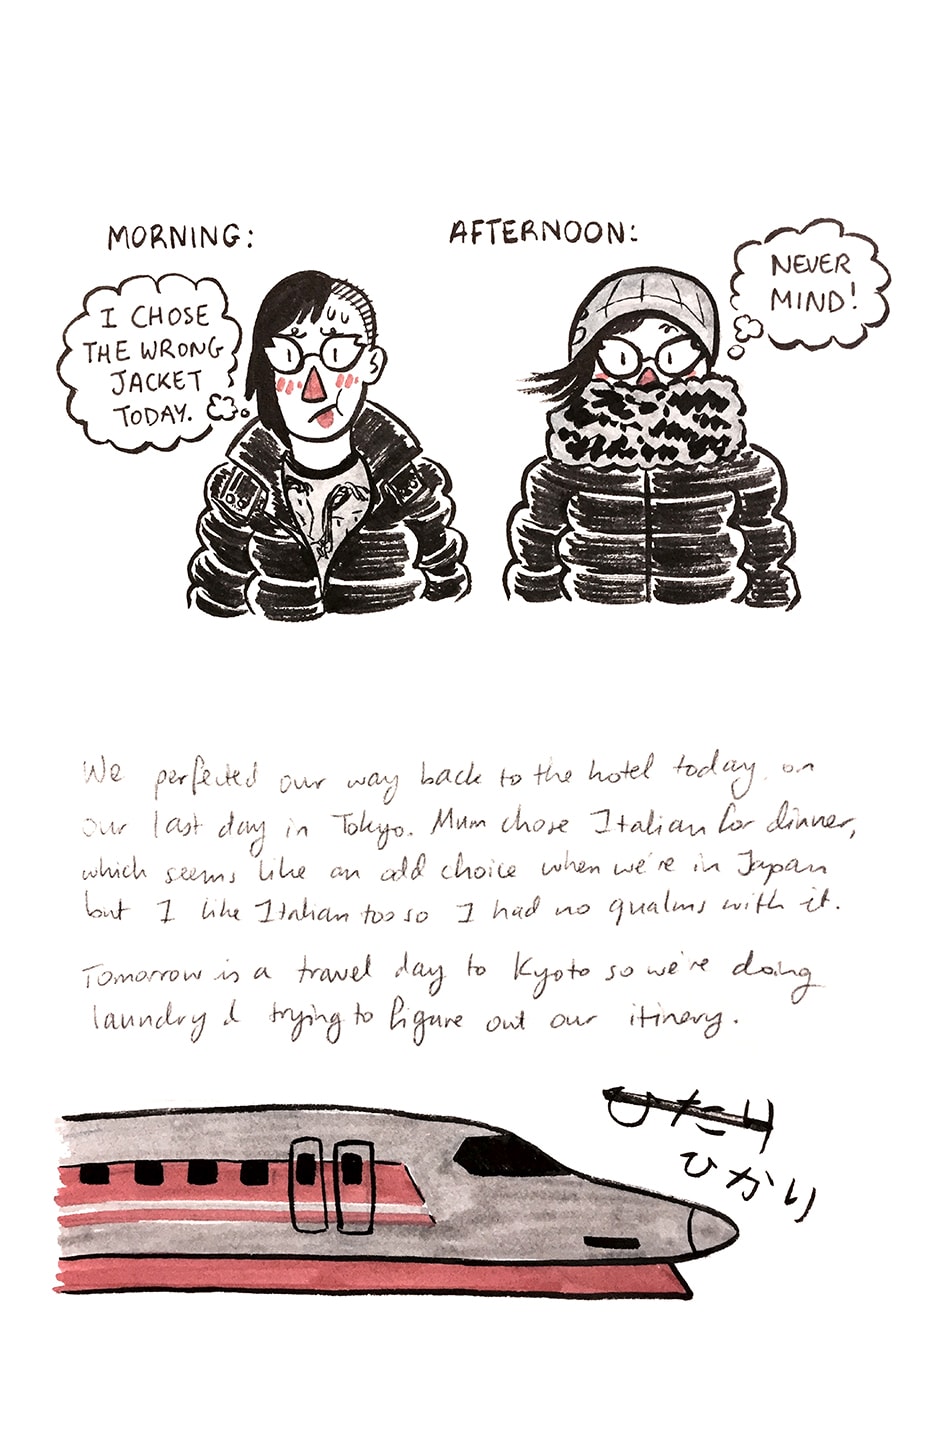 MORNING:
AFTERNOON:
I CHOSE
THE WRONG
JACKET
TODAY.
NEVER
MIND!
We perfected our way back to the hotel today, on
our last day in Tokyo. Mum chose Italian for dinner,
which seems like an odd choice when we're in Japan
but I like Italian too so I had no qualms with it.
Tomorrow is a travel day to Kyoto so we're doing
laundry & trying to figure out our itinery.
ひたり
ひかり